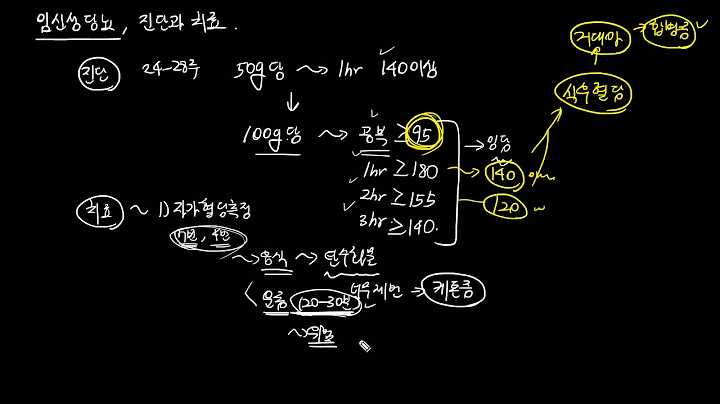 임신성 당뇨, 진단과 치료.
거대아 → 합병증 ✓
진단 24-28주 50g 당 ~> 1hr 140이상
식후혈당
100g 당 ~> 공복 ≥ 95
→ 임당
1hr ≥ 180 → 140
2hr ≥ 155 120
3hr ≥ 140.
치료 ~ 1) 자가혈당측정
7번, 4번
~> 음식 ~> 탄수화물
운동 (20-30분) 너무 제한 → 케톤증
~> 매일